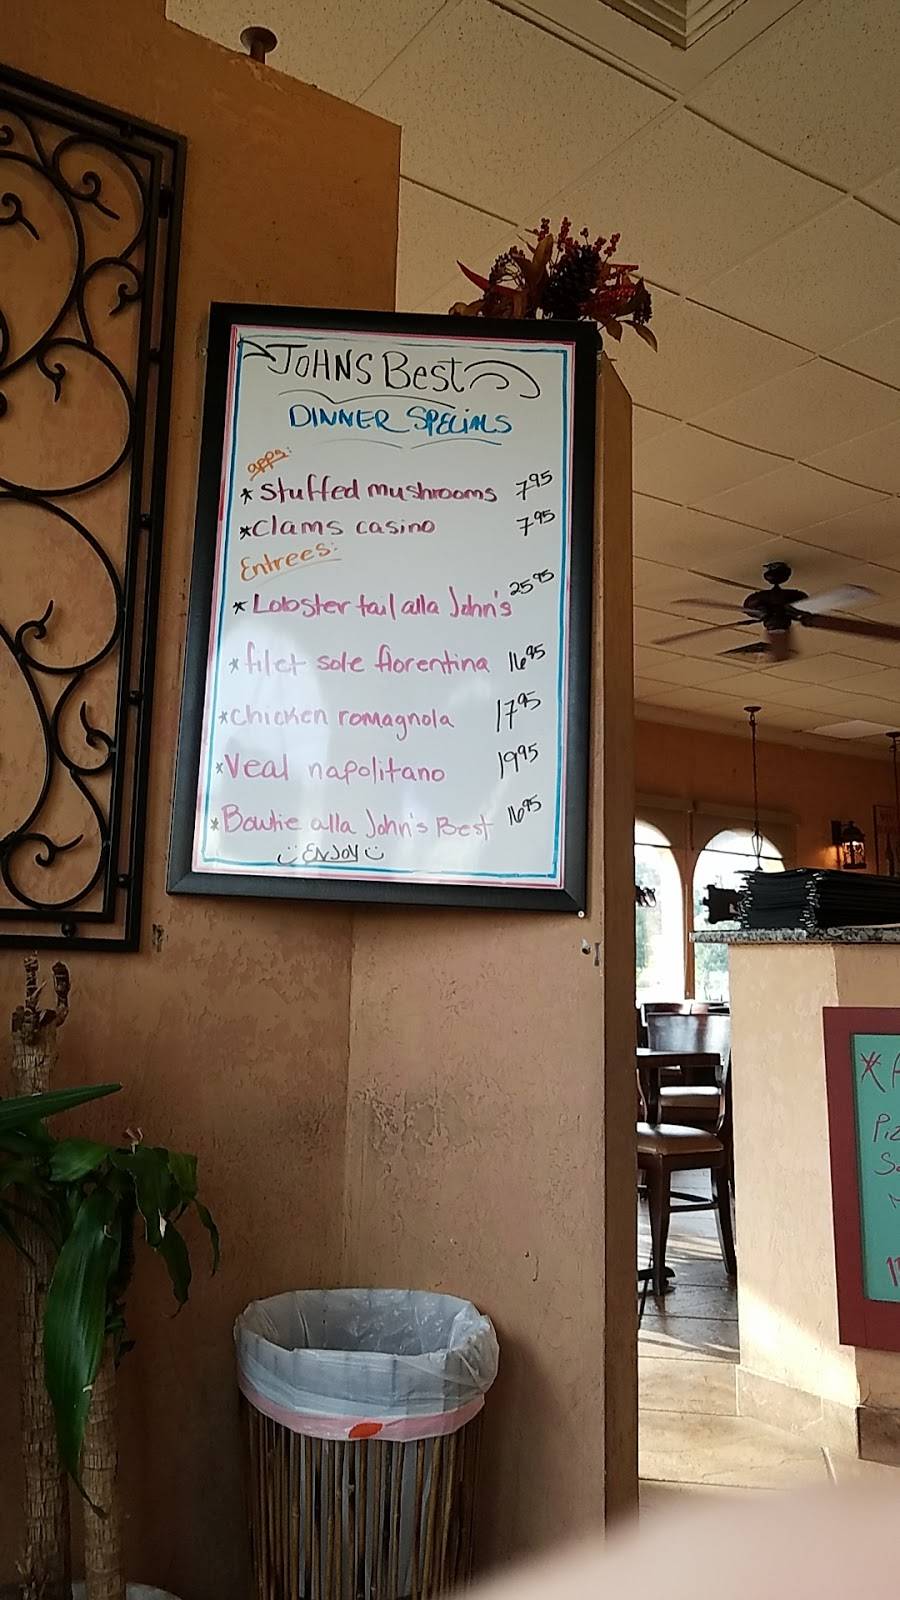 JOHNS Best
DINNER SPECIALS
apps:
* Stuffed mushrooms 7.95
* Clams casino 7.95
Entrees:
* Lobster tail alla John's 25.95
* filet sole florentina 16.95
* Chicken romagnola 17.95
* Veal napolitano 19.95
* Bowtie alla John's Best 16.95
ENJOY